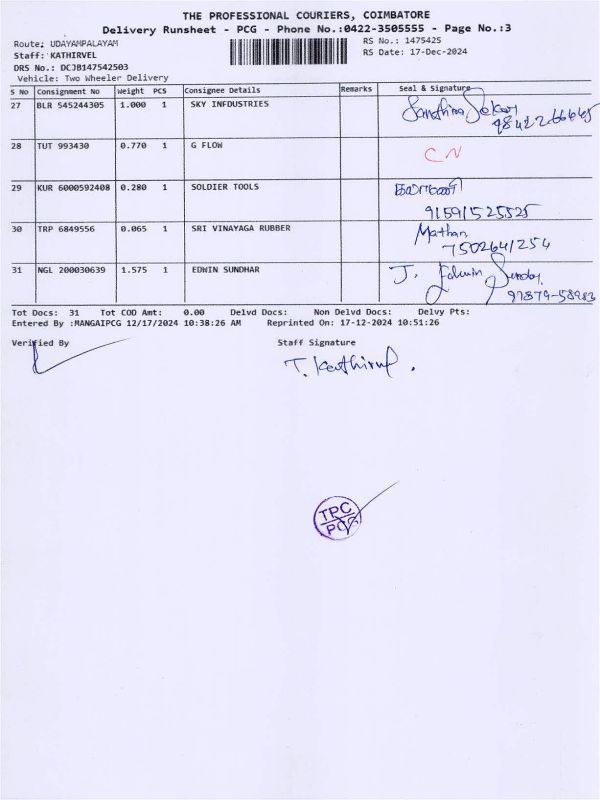 THE PROFESSIONAL COURIERS, COIMBATORE
Delivery Runsheet - PCG - Phone No.:0422-3505555 - Page No.:3
Route: UDAYAMPALAYAM RS No.: 1475425
Staff: KATHIRVEL RS Date: 17-Dec-2024
DRS No.: DCJB147542503
Vehicle: Two Wheeler Delivery
S No Consignment No Weight PCS Consignee Details Remarks Seal & Signature
27 BLR 545244305 1.000 1 SKY INFDUSTRIES
28 TUT 993430 0.770 1 G FLOW CN
29 KUR 6000592408 0.280 1 SOLDIER TOOLS
91591525525
30 TRP 6849556 0.065 1 SRI VINAYAGA RUBBER Mathan
7502641254
31 NGL 200030639 1.575 1 EDWIN SUNDHAR J. Edwin
97879-58983
Tot Docs: 31 Tot COD Amt: 0.00 Delvd Docs: Non Delvd Docs: Delvy Pts:
Entered By :MANGAIPCG 12/17/2024 10:38:26 AM Reprinted On: 17-12-2024 10:51:26
Verified By Staff Signature
T. Kathirvel.
TPC
PCG